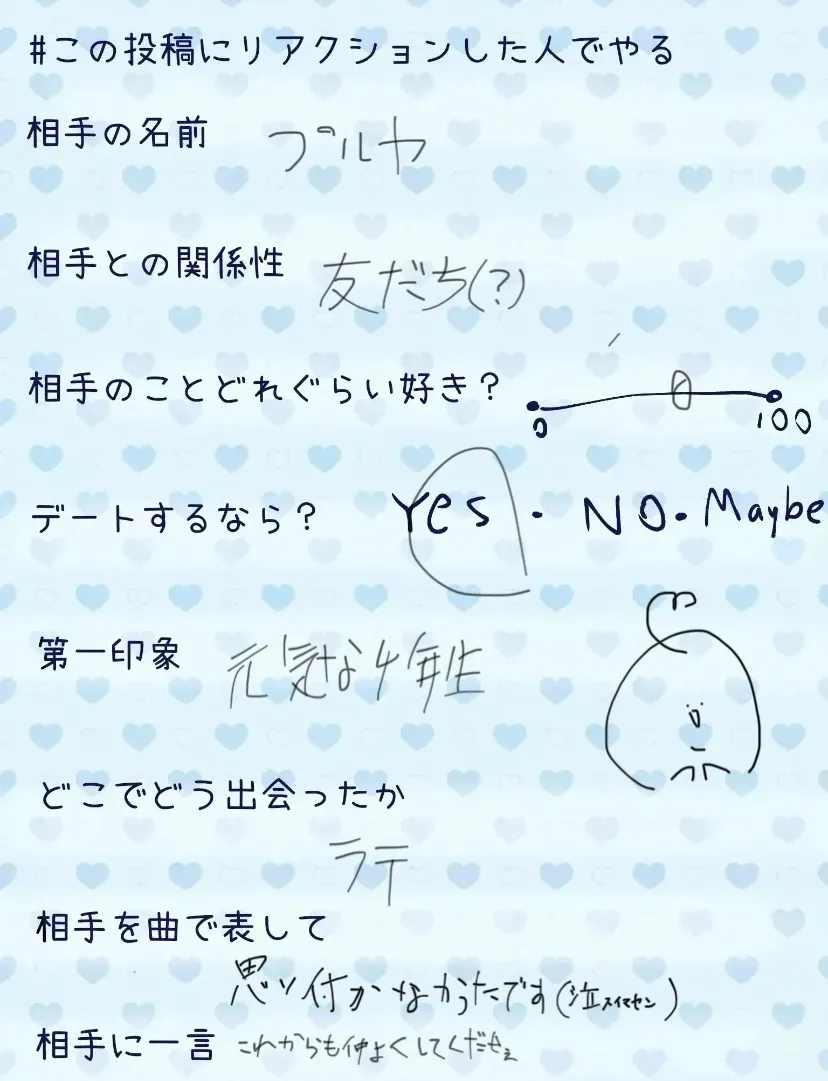 #この投稿にリアクションした人でやる
相手の名前 プルヤ
相手との関係性 友だち(?)
相手のことどれぐらい好き? 0 100
デートするなら? Yes・NO・Maybe
第一印象 元気な4年生
どこでどう出会ったか
ラテ
相手を曲で表して
思い付かなかったです(泣スイマセン)
相手に一言 これからも仲よくしてくだせぇ